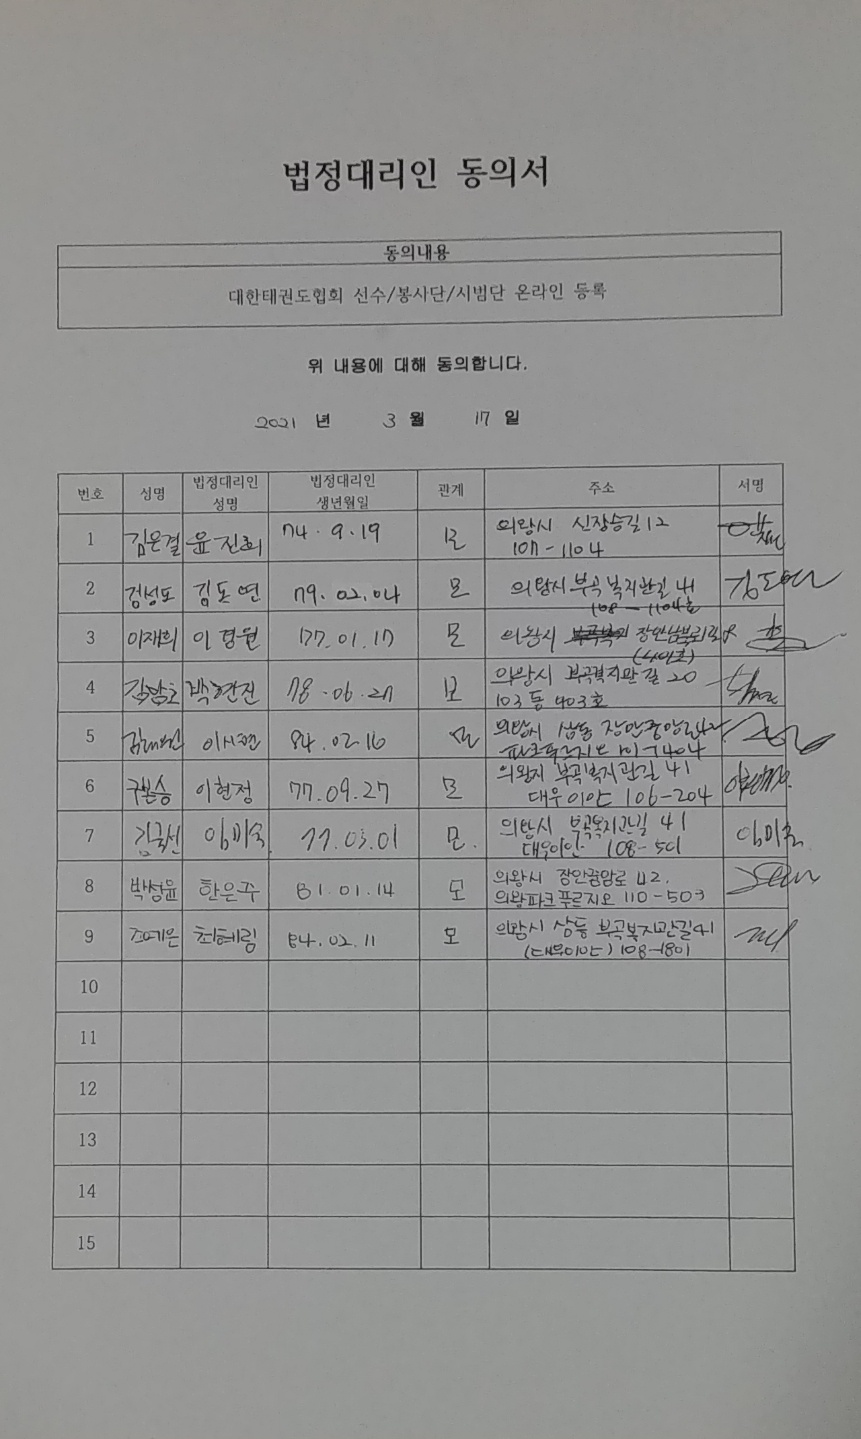 법정대리인 동의서
동의내용
대한태권도협회 선수/봉사단/시범단 온라인 등록
위 내용에 대해 동의합니다.
2021 년 3 월 17 일
번호 성명 법정대리인 성명 법정대리인 생년월일 관계 주소 서명
1 김은결 윤진희 74·9·19 모 의왕시 신장승길 12
107-1104
2 김도연 79.02.04 모 의왕시 부곡복지관길 41 김도연
108-1104호
3 이재희 이경원 77.01.17 모 의왕시
4 박현진 78·06·27 모 의왕시 부곡복지관길 20
103동 403호
5 84.02.16 모 의왕시 삼동 장안중앙로
파크푸르지오
6 구본승 이현정 77.09.27 모 의왕시 부곡복지관길 41
대우이안 106-204
7 이미숙 77.03.01 모. 의왕시 부곡복지관길 41
대우이안 108-501
8 박성윤 한은주 81.01.14 모 의왕시 장안중앙로 42.
의왕파크푸르지오 110-503
9 조예은 최혜림 84.02.11 모 의왕시 삼동 부곡복지관길41
(대우이안) 108-1801
10
11
12
13
14
15